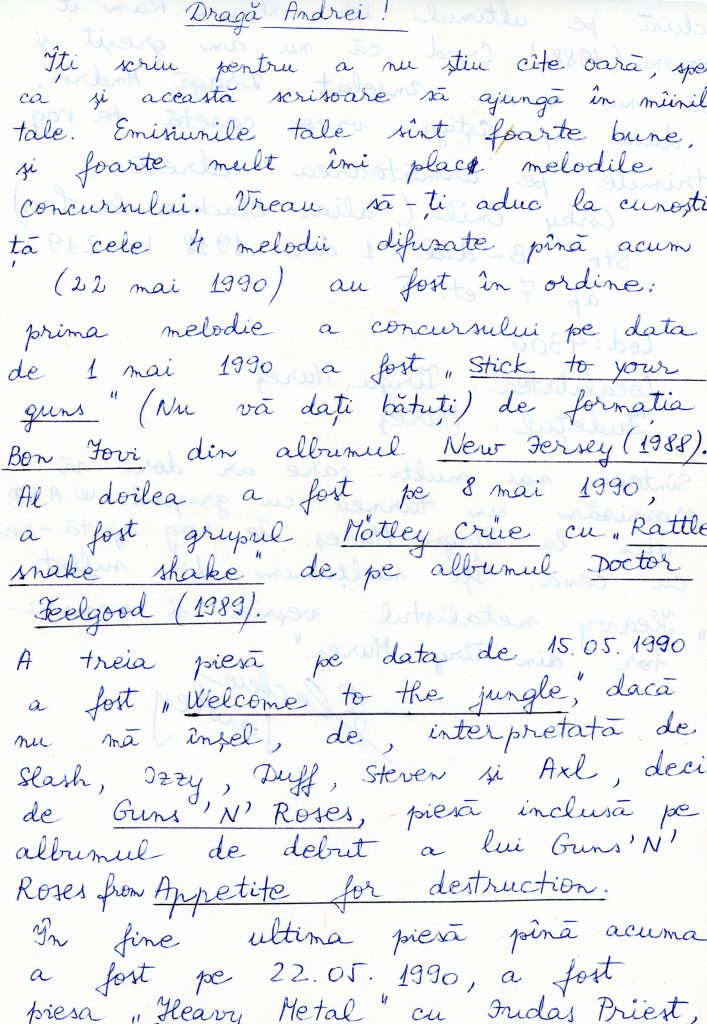 Dragă Andrei!
Îti scriu pentru a nu știu cîte oară, spe
ca și această scrisoare să ajungă în mîinil
tale. Emisiunile tale sînt foarte bune,
și foarte mult îmi plac melodile
concursului. Vreau să-ți aduc la cunoști
ță cele 4 melodii difuzate pînă acum
(22 mai 1990) au fost în ordine:
prima melodie a concursului pe data
de 1 mai 1990 a fost „Stick to your
guns" (Nu vă dați bătuți) de formația
Bon Jovi din albumul New Jersey (1988).
Al doilea a fost pe 8 mai 1990,
a fost grupul Mötley Crüe cu „Rattle
snake shake" de pe albumul Doctor
Feelgood (1989).
A treia piesă pe data de 15.05.1990
a fost „Welcome to the jungle," dacă
nu mă înșel, de, interpretată de
Slash, Izzy, Duff, Steven și Axl, deci
de Guns 'N' Roses, piesă inclusă pe
albumul de debut a lui Guns 'N'
Roses from Appetite for destruction.
În fine ultima piesă pînă acuma
a fost pe 22.05.1990, a fost
piesa „Heavy Metal" cu Judas Priest,